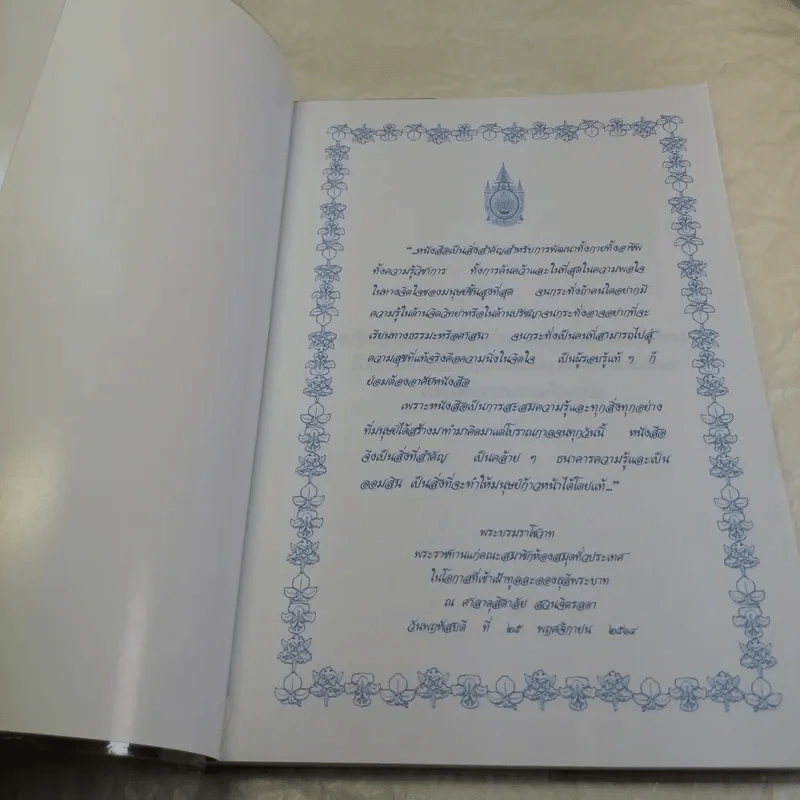 “...หนังสือเป็นสิ่งสำคัญสำหรับการพัฒนาทั้งกายทั้งอาชีพ
ทั้งความรู้วิชาการ ทั้งการค้นคว้าและในที่สุดในความพอใจ
ในทางจิตใจของมนุษย์ขั้นสูงที่สุด จนกระทั่งถ้าคนใดอยากมี
ความรู้ในด้านจิตวิทยาหรือในด้านปรัชญาจนกระทั่งอาจอยากที่จะ
เรียนทางธรรมะหรือศาสนา จนกระทั่งเป็นคนที่สามารถไปสู่
ความสุขที่แท้จริงคือความนิ่งในจิตใจ เป็นผู้รอบรู้แท้ ๆ ก็
ย่อมต้องอาศัยหนังสือ
เพราะหนังสือเป็นการสะสมความรู้และทุกสิ่งทุกอย่าง
ที่มนุษย์ได้สร้างมาทำมาคิดมาแต่โบราณกาลจนทุกวันนี้ หนังสือ
จึงเป็นสิ่งที่สำคัญ เป็นคล้าย ๆ ธนาคารความรู้และเป็น
ออมสิน เป็นสิ่งที่จะทำให้มนุษย์ก้าวหน้าได้โดยแท้...”
พระบรมราโชวาท
พระราชทานแก่คณะสมาชิกห้องสมุดทั่วประเทศ
ในโอกาสที่เข้าเฝ้าทูลละอองธุลีพระบาท
ณ ศาลาดุสิดาลัย สวนจิตรลดา
วันพฤหัสบดี ที่ ๒๕ พฤศจิกายน ๒๕๑๔